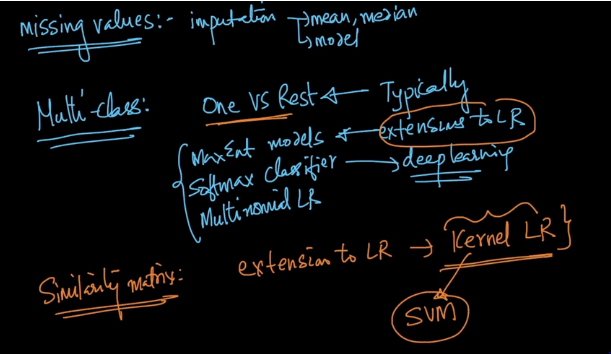 missing values:- imputation → mean, median
→ model
Multi-class: One VS Rest ← Typically
MaxEnt models ← extensions to LR
Softmax Classifier → deep learning
Multinomial LR
Similarity matrix: extension to LR → Kernel LR}
SVM